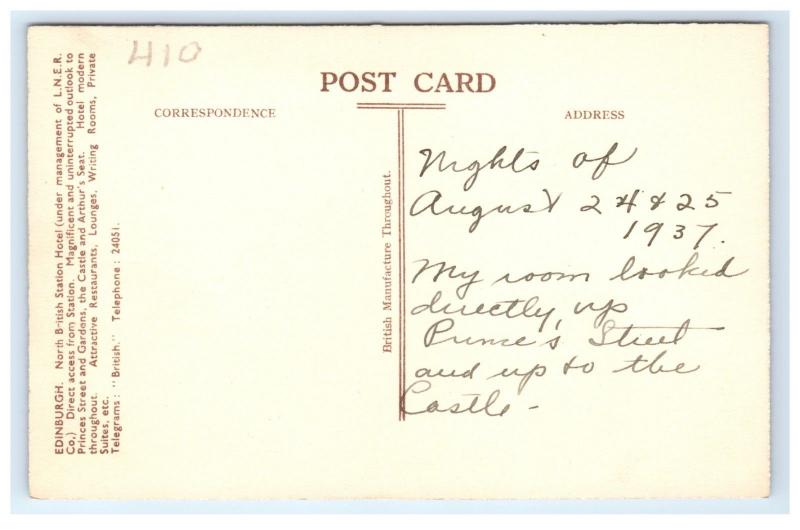 410
POST CARD
CORRESPONDENCE
ADDRESS
EDINBURGH. North British Station Hotel (under management of L.N.E.R.
Co.) Direct access from Station. Magnificent and uninterrupted outlook to
Princes Street and Gardens, the Castle and Arthur's Seat. Hotel modern
throughout. Attractive Restaurants, Lounges, Writing Rooms, Private
Suites, etc.
Telegrams: "British." Telephone: 24051.
British Manufacture Throughout.
Nights of
August 24 & 25
1937.
My room looked
directly up
Prince's Street
and up to the
Castle-